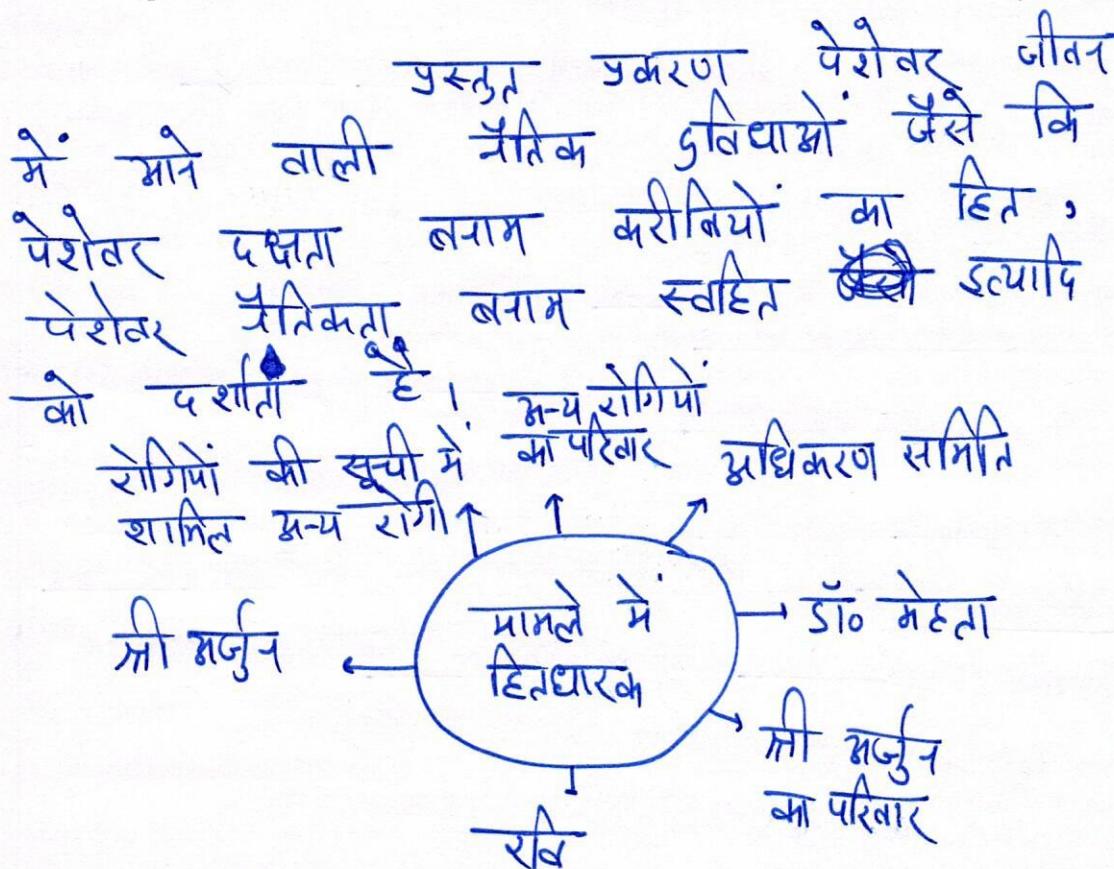 प्रस्तुत प्रकरण पेशेवर जीवन
में आने वाली नैतिक दुविधाओं जैसे कि
पेशेवर दक्षता बनाम करीबियों का हित,
पेशेवर नैतिकता बनाम स्वहित इत्यादि
को दर्शाता है।
अन्य रोगियों
का परिवार
रोगियों की सूची में
शामिल अन्य रोगी
अधिकरण समिति
श्री अर्जुन
मामले में
हितधारक
डॉ० मेहता
श्री अर्जुन
का परिवार
रवि